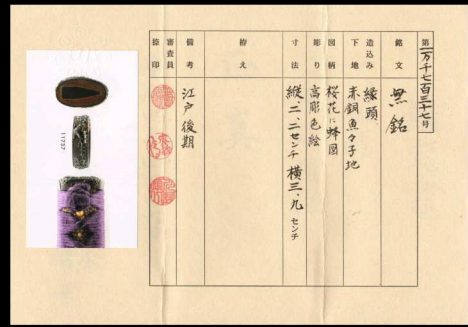 第一万千七百三十七号
銘文 無銘
造込み 縁頭
下地 赤銅魚々子地
図柄 桜花に蜂図
彫り 高彫色絵
寸法 縦、二、二センチ 横三、九センチ
拵え
備考 江戸後期
審査員
捺印
11737